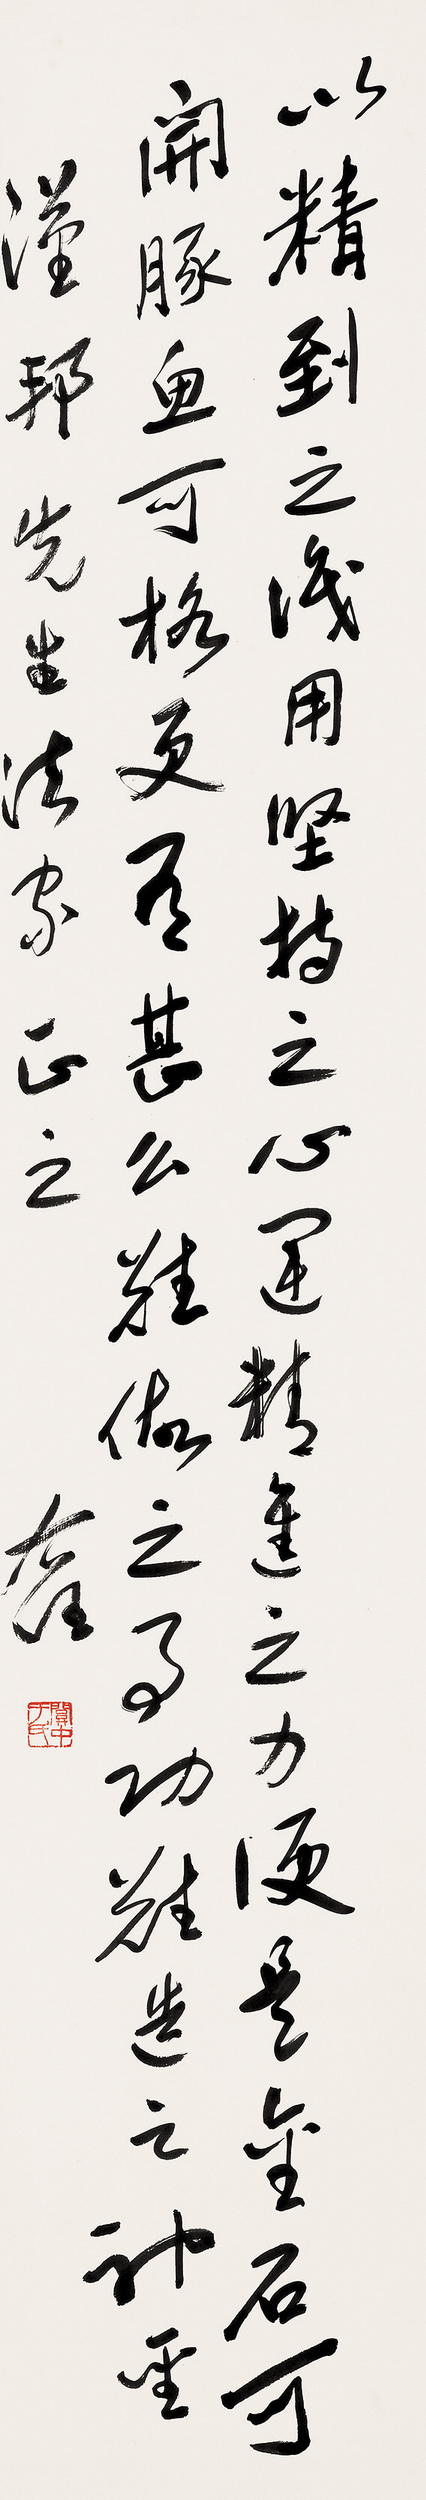 以精到之識用堅持之心運精進之力便是金石可
開豚魚可格更有甚么難做之事功難造之神聖
漢邦先生法家正之 右任
關中于氏